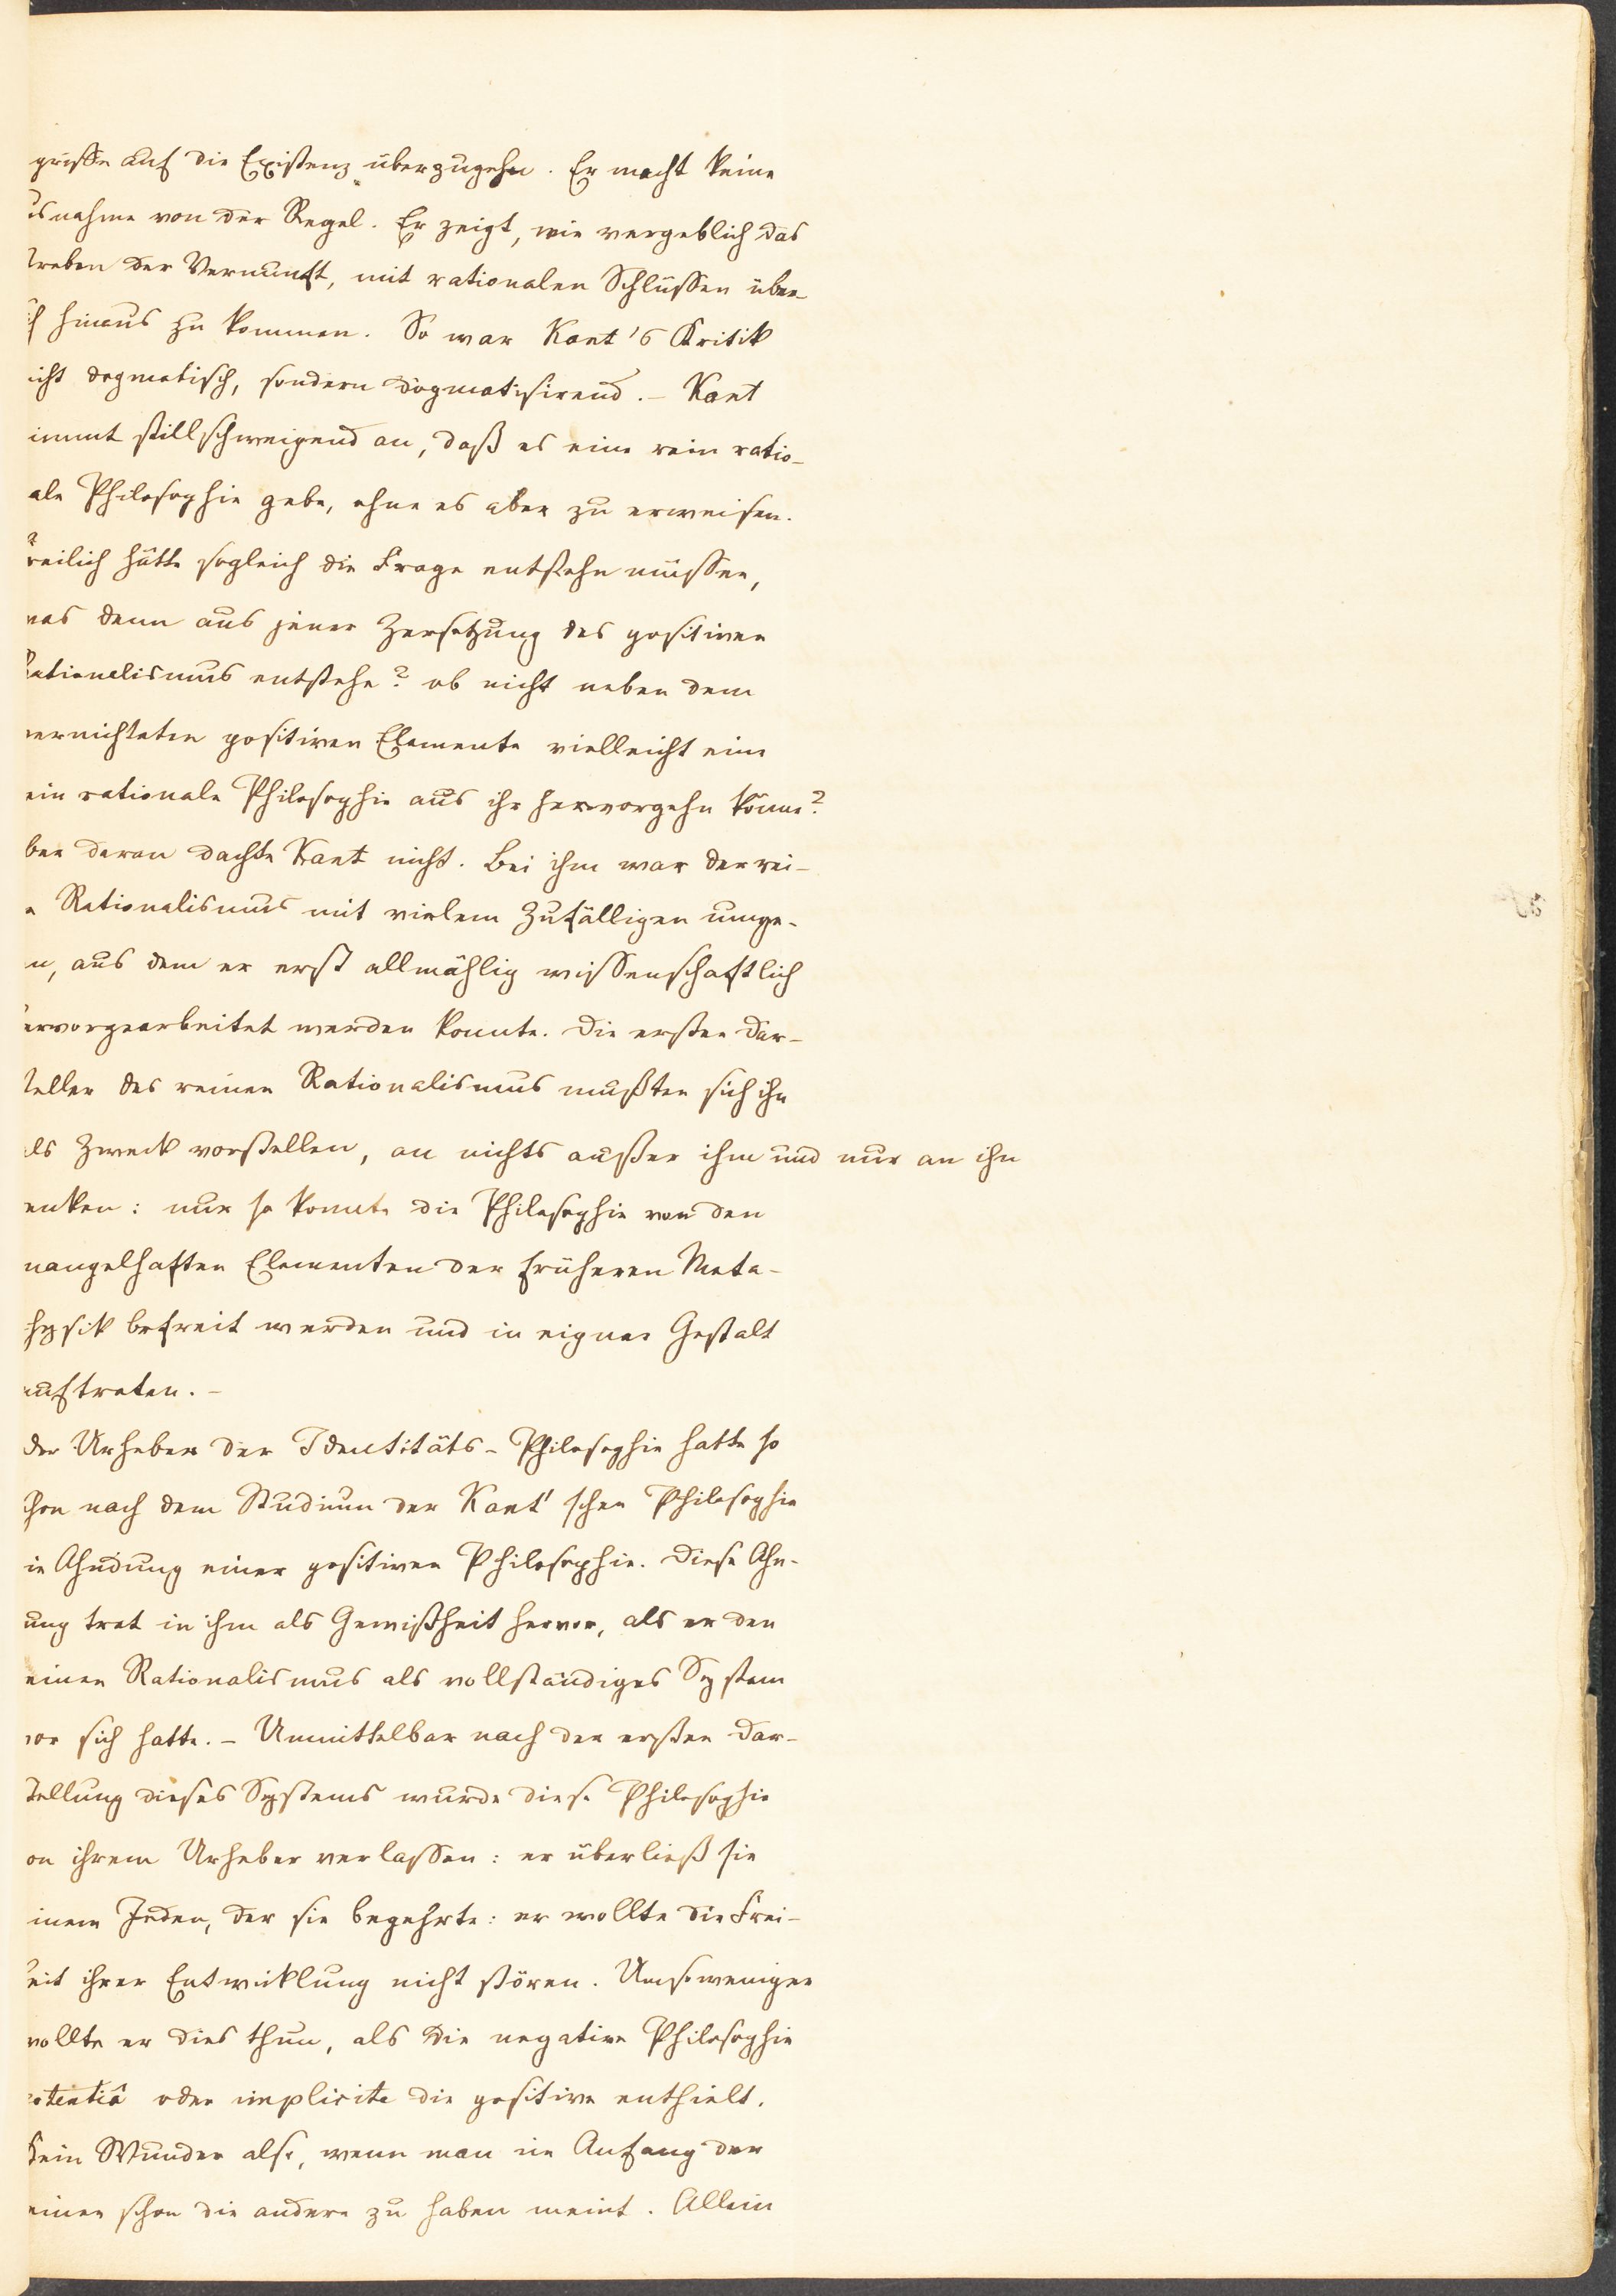 griffe auf die Existenz überzugehn. Er macht keine
usnahme von der Regel. Er zeigt, wie vergeblich das
treben der Vernunft, mit rationalen Schlüssen über
ich hinaus zu kommen. So war Kant's Kritik
icht dogmatisch, sondern dogmatisirend. – Kant
immt stillschweigend an, daß es eine rein ratio-
ale Philosophie gebe, ohne es aber zu erweisen.
reilich hätte sogleich die Frage entstehn müssen,
was denn aus jener Zersetzung des positiven
Rationalismus entstehe? ob nicht neben dem
vernichteten positiven Elemente vielleicht eine
ein rationale Philosophie aus ihr hervorgehn könne?
ber daran dachte Kant nicht. Bei ihm war der rei-
e Rationalismus mit vielem Zufälligen umge-
n, aus dem er erst allmählig wissenschaftlich
ervorgearbeitet werden konnte. Die ersten Dar-
teller des reinen Rationalismus mußten sich ihn
als Zweck vorstellen, an nichts außer ihm und nur an ihn
enken: nur so konnte die Philosophie von den
mangelhaften Elementen der früheren Meta-
hysik befreit werden und in eigner Gestalt
auftreten. –
Der Urheber der Identitäts-Philosophie hatte so
chon nach dem Studium der Kant'schen Philosophie
ie Ahndung einer positiven Philosophie. Diese Ahn-
ung trat in ihm als Gewißheit hervor, als er den
einen Rationalismus als vollständiges System
vor sich hatte. – Unmittelbar nach der ersten Dar-
tellung dieses Systems wurde diese Philosophie
on ihrem Urheber verlassen: er überließ sie
inem Jeden, der sie begehrte: er wollte die Frei-
eit ihrer Entwicklung nicht stören. Umsoweniger
wollte er dies thun, als die negative Philosophie
otentiâ oder implicite die positive enthielt.
Kein Wunder also, wenn man im Anfang der
einen schon die andere zu haben meint. Allein